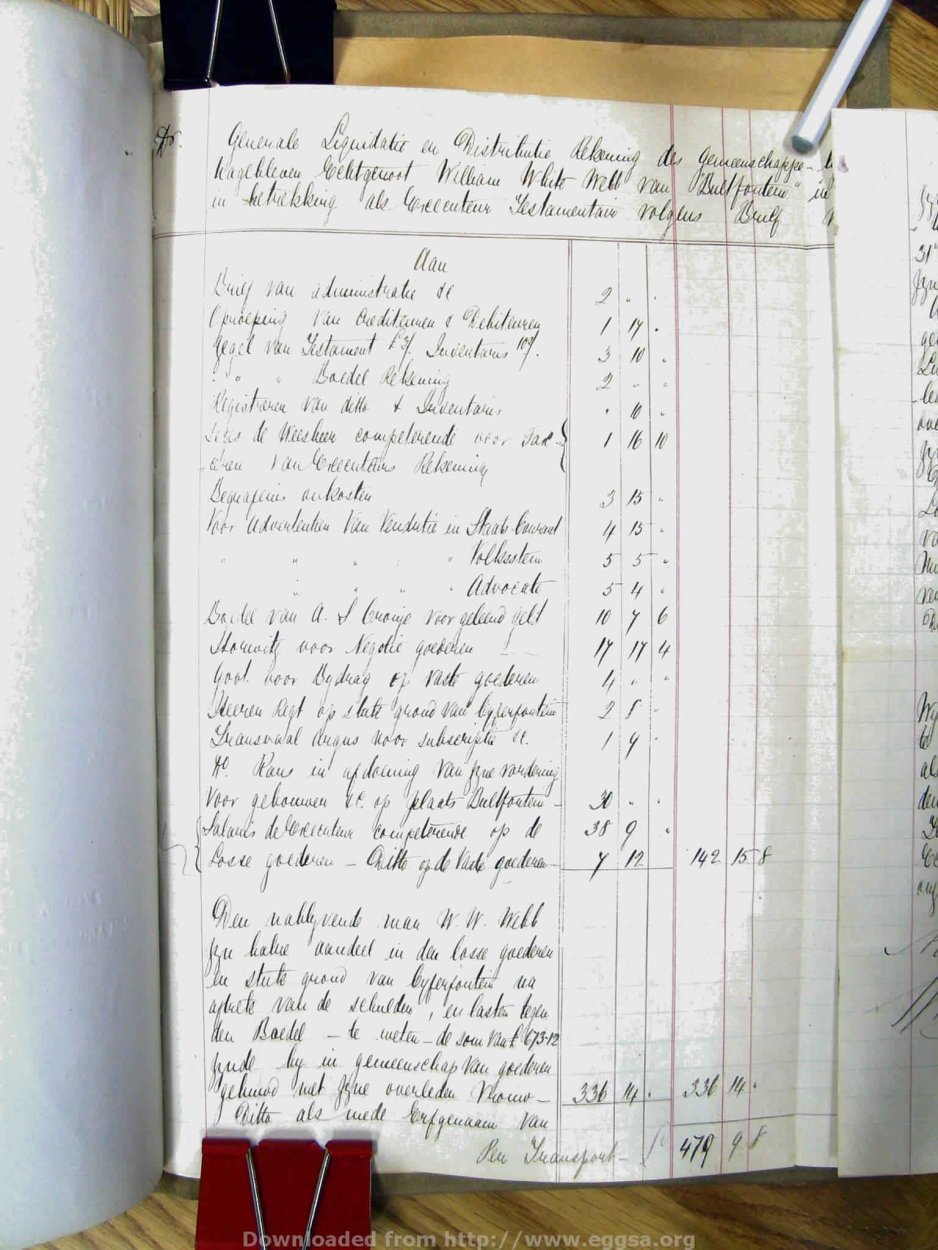 Dr.
Generale Liquidatie en Distributie Rekening des gemeenschappe-
Nagebleven Echtgenoot William White Webb van "Bultfontein" in
in betrekking als Executeur Testamentair volgens Brief
Aan
Brief van administratie &c 2 " "
Oproeping van Crediteuren & Debiteuren 1 17 "
Zegel van Testament £3/. Inventaris 10/. 3 10 "
" " Boedel Rekening 2 " "
Registreren van ditto & Inventaris " 10 "
Leges de Weesheer competerende voor Tax- 1 16 10
-eren van Executeurs Rekening
Begrafenis onkosten 3 15 "
Voor Advertentien van Vendutie in Staats Courant 4 15 "
" " " " Volksstem 5 5 "
" " " " Advocate 5 4 "
Boedel van A. S. Cronje voor geleend geld 10 7 6
Horwitz voor Negotie goederen 17 17 4
Govt. voor Bydrag op vaste goederen 4 " "
Heeren regt op stuk grond van Cyferfontein 2 8 "
Transvaal Argus voor subscriptie &c. 1 4 "
Raus in afdoening van zyne vordering
voor gebouwen &c. op plaats Bultfontein - 30 " "
Salaris de Executeur competerende op de 38 9 "
Losse goederen - Ditto op de Vaste goederen - 7 12 142 15 8
Den nablyvende man W. W. Webb
zyn halve aandeel in den losse goederen
en stuk grond van Cyferfontein na
aftrek van de schulden, en lasten tegen
den Boedel - te weten - de som van £673-12
zynde hy in gemeenschap van goederen
gehuwd met zyne overleden Vrouw - 336 14 " 336 14 "
Ditto als mede Erfgenaam van
Per Transport - £ 479 9 8
31
Downloaded from http://www.eggsa.org